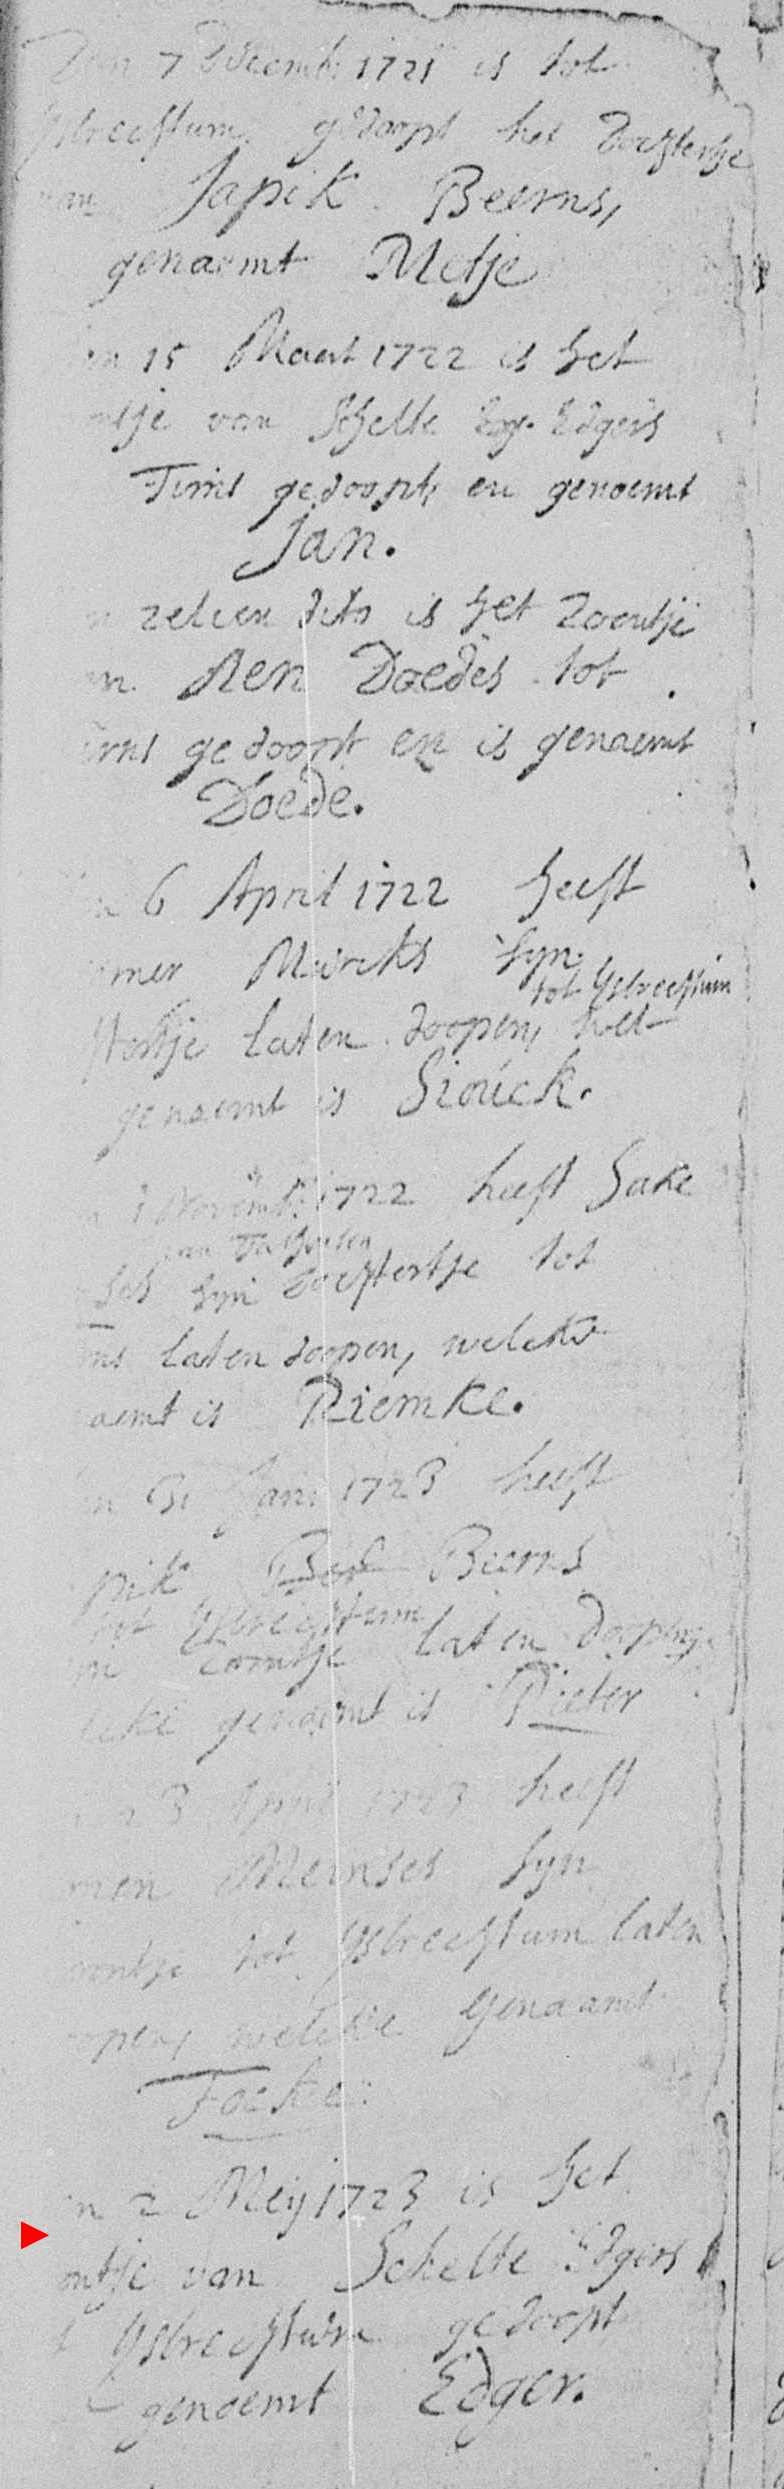 Den 7 Decemb. 1721 is tot
Ysbrechtum gedoopt het dochtertje
van Japik Beerns,
genaemt Metje
en 15 Maert 1722 is het
ntje van Schelte Edgers
Tirns gedoopt en genoemt
Jan.
n zelven dito is het Zoontje
an Ren Doedes tot
irns gedoopt en is genaemt
Doede.
n 6 April 1722 heeft
mer Murcks syn
tot Ysbrechtum
htertje laten doopen, wel
genaemt is Siouck.
n 1 Novemb. 1722 heeft Sake
van
ses syn dochtertje tot
ns laten doopen, welcke
aemt is Riemke.
n 31 Jan: 1723 heeft
pik Beerns
tot Ysbrechtum
yn zoontje laten doopen,
lcke genaemt is Pieter
3 April 1723 heeft
men Meinses syn
oontje tot Ysbrechtum laten
open, welcke genaamt
Focke.
n 2 Meij 1723 is het
ontje van Schelte Edgers
t Ysbrechtum gedoopt
genoemt Edger.